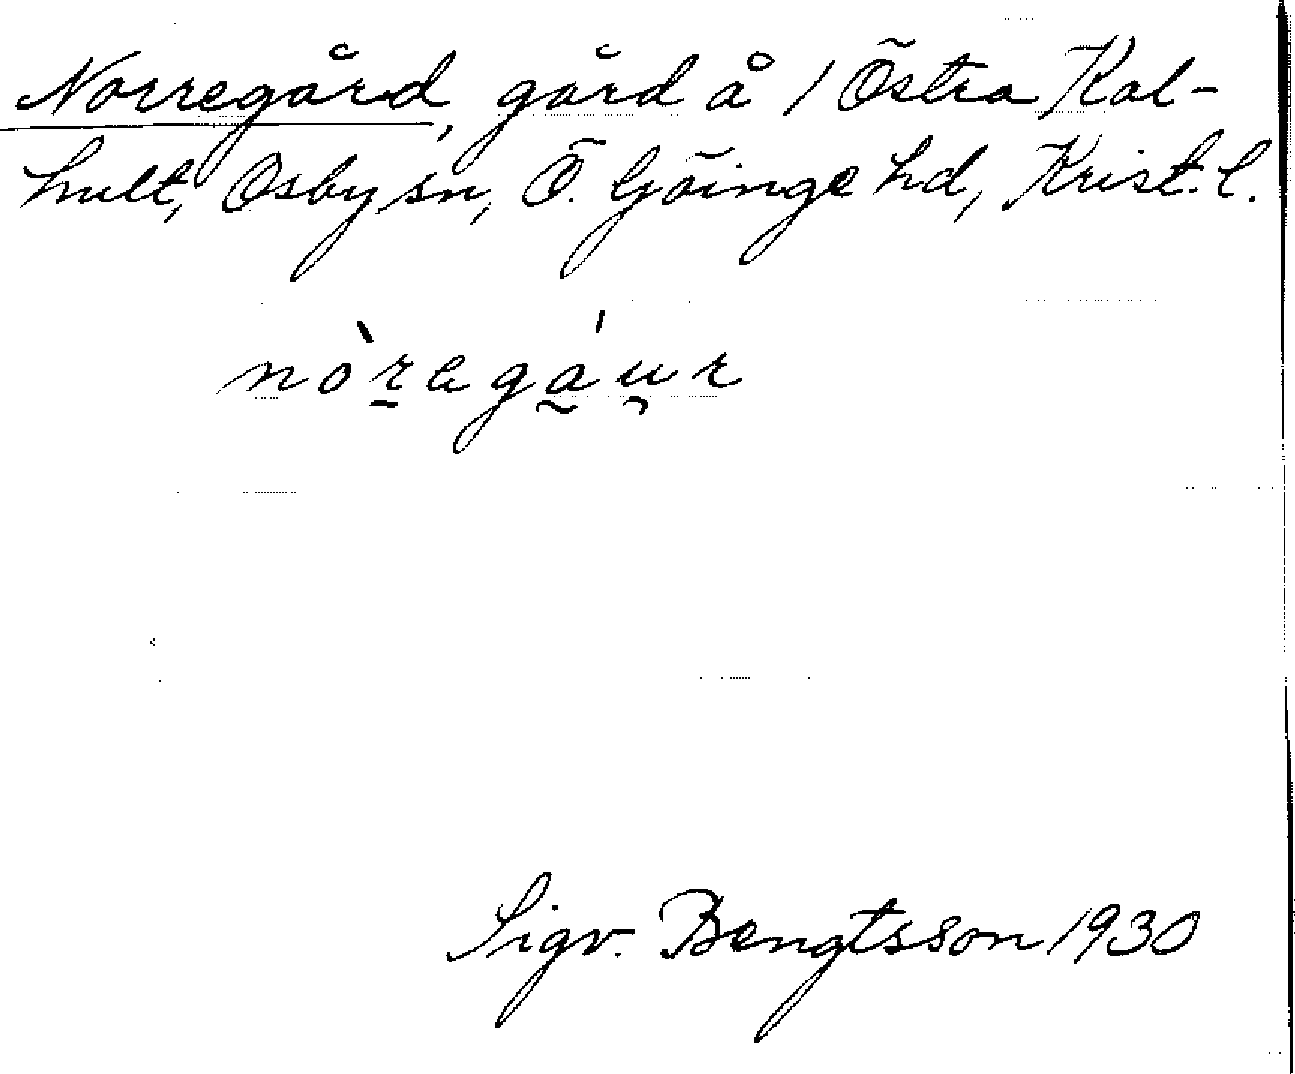 Norregård, gård å 1 Östra Kal-
hult, Osby sn, Ö. Göinge hd, Krist. l.
nòregáur
Sigv. Bengtsson 1930